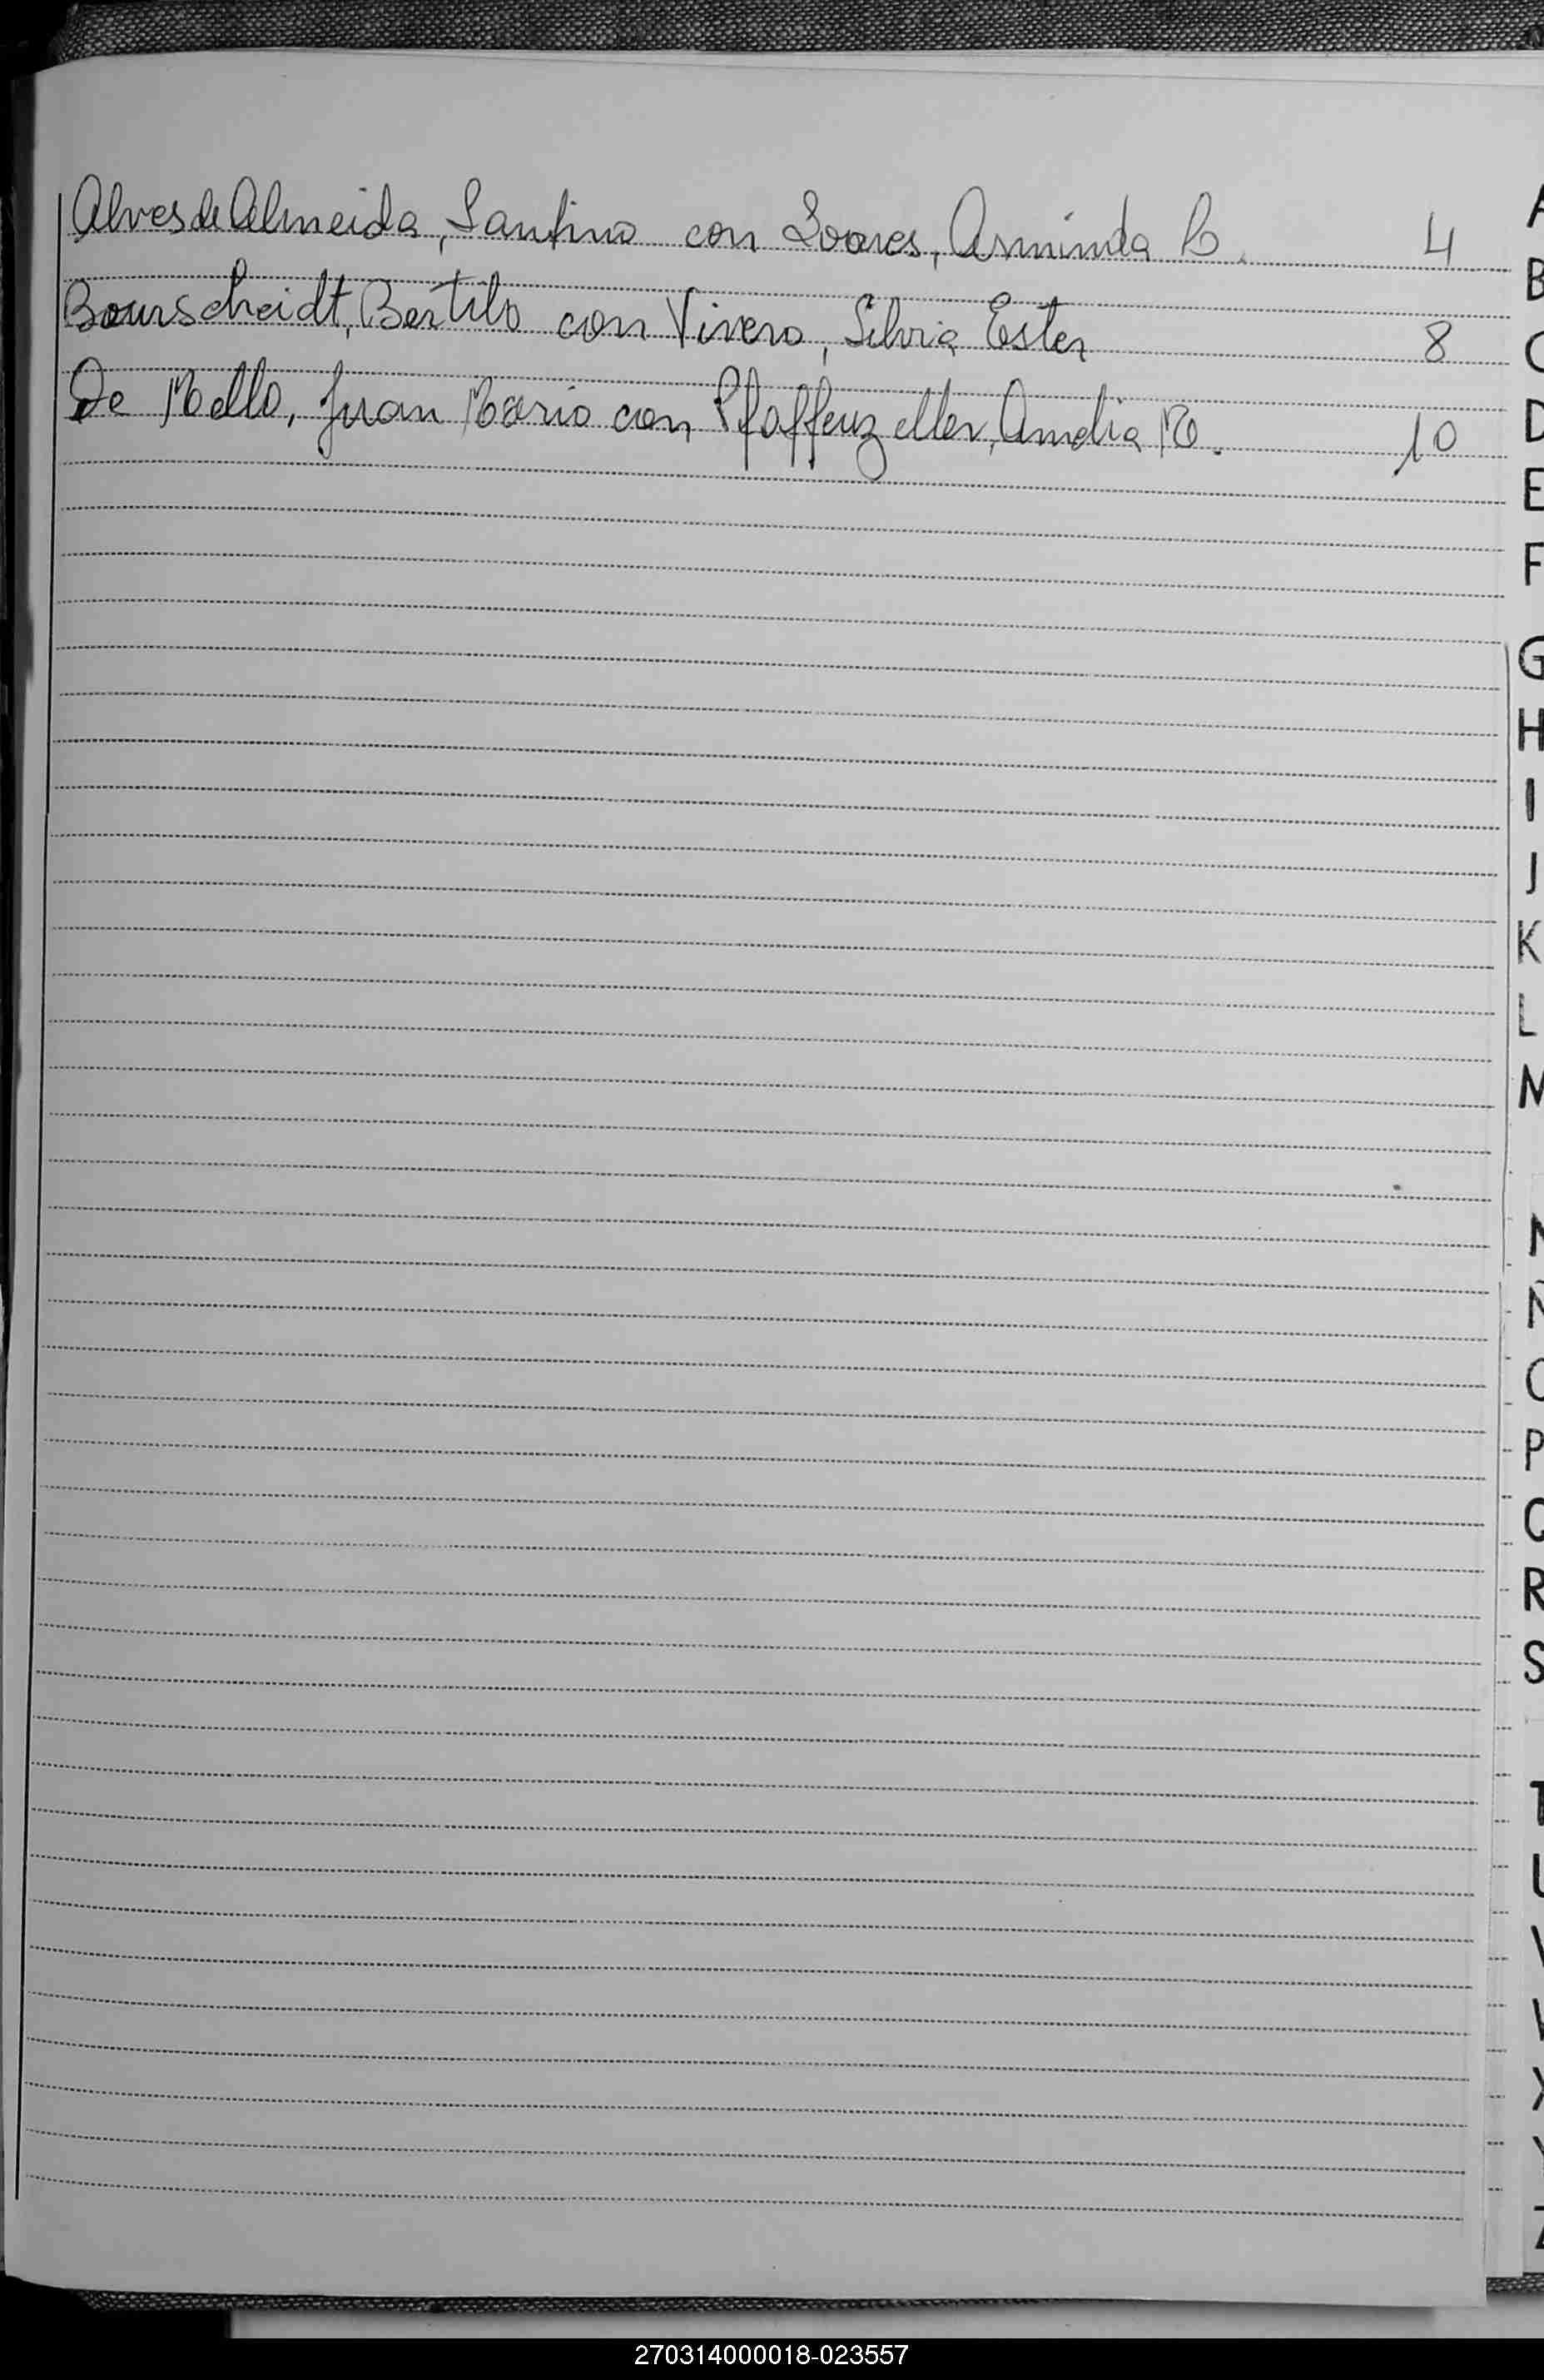 Alves de Almeida, Santino con Soares, Arminda B. 4
Bourscheidt, Bertilo con Vivero, Silvia Ester 8
De Mello, Juan Mario con Pfaffenzeller, Amelia M. 10
A
B
C
D
E
F
G
H
I
J
K
L
M
N
Ñ
O
P
Q
R
S
T
U
V
W
X
Y
Z
270314000018-023557